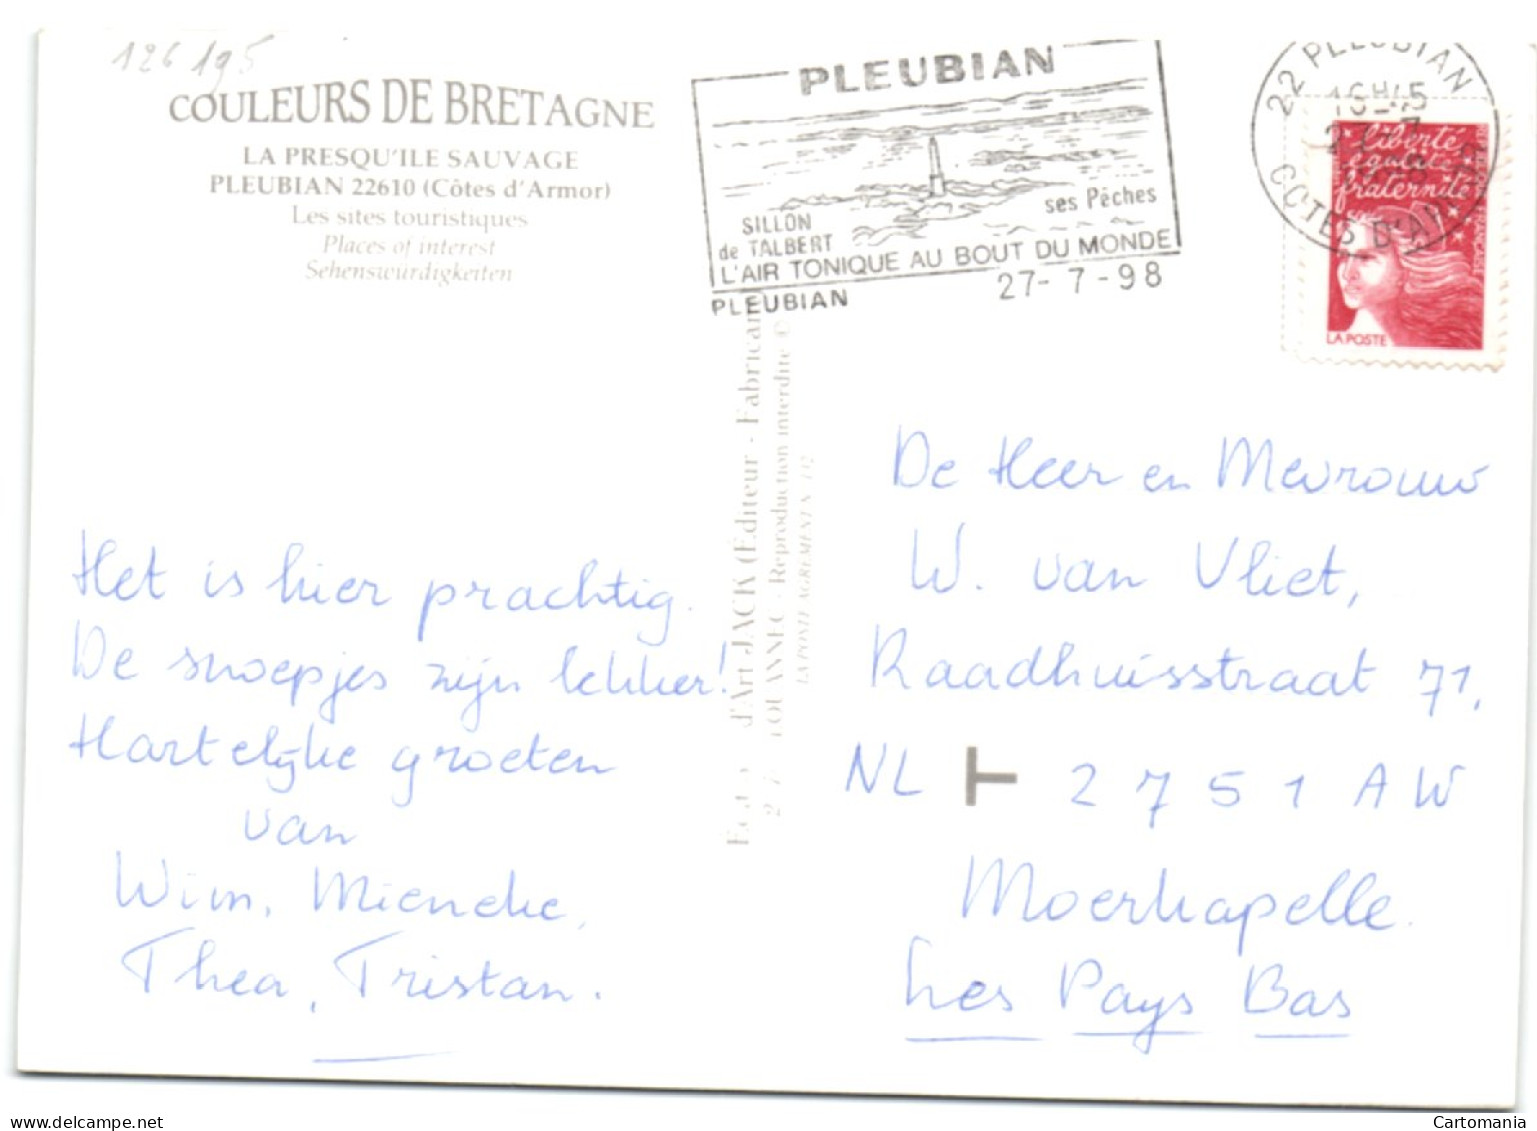 126 195
COULEURS DE BRETAGNE
LA PRESQU'ILE SAUVAGE
PLEUBIAN 22610 (Côtes d'Armor)
Les sites touristiques
Places of interest
Sehenswürdigkeiten
PLEUBIAN
SILLON
de TALBERT
ses Pêches
L'AIR TONIQUE AU BOUT DU MONDE
PLEUBIAN
27-7-98
22 PLEUBIAN
COTES D'ARMOR
liberté
égalité
fraternité
LA POSTE
d'Art JACK (Éditeur - Fabricant
LOUANNEC - Reproduction interdite ©
LA POSTE AGREMENT N°
Het is hier prachtig.
De snoepjes zijn lekker!
Hartelijke groeten
van
Wim, Mieneke,
Thea, Tristan.
De Heer en Mevrouw
W. van Vliet,
Raadhuisstraat 71,
NL T 2751 AW
Moerkapelle.
Les Pays Bas
Cartomania